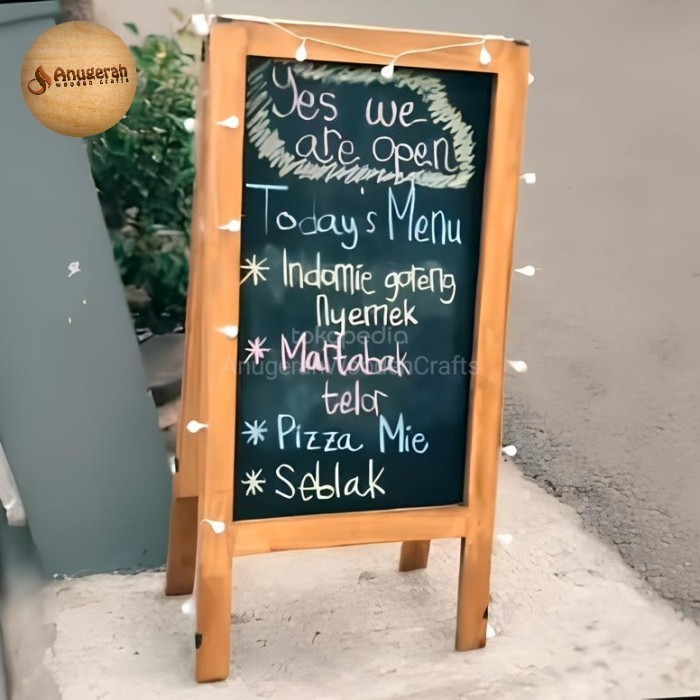 Anugerah
wooden crafts
Yes we
are open
Today's Menu
* Indomie goreng
nyemek
tokopedia
* Martabak
AnugerahWoodenCrafts
telor
* Pizza Mie
* Seblak